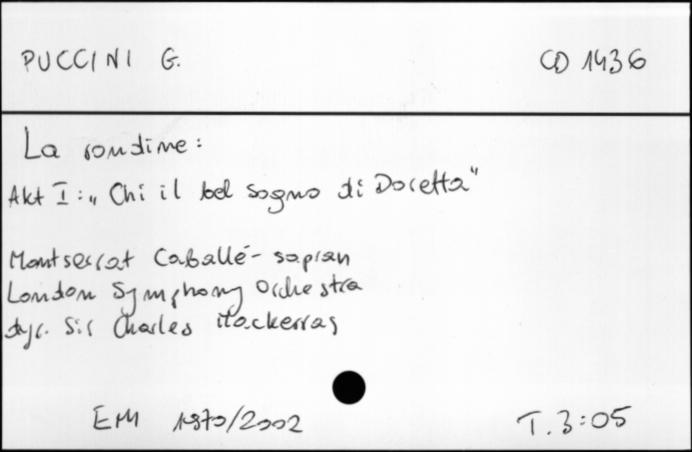 PUCCINI G. CD 1436
La rondine:
Akt I: „Chi il bel sogno di Doretta"
Montserrat Caballé - sopran
London Symphony Orchestra
dyr. Sir Charles Mackerras
EMI 1970/2002 T. 3:05